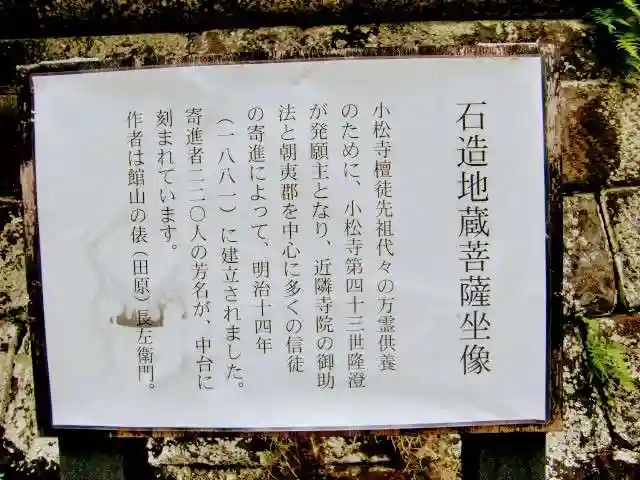 石造地蔵菩薩坐像
小松寺檀徒先祖代々の方霊供養
のために、小松寺第四十三世隆澄
が発願主となり、近隣寺院の御助
法と朝夷郡を中心に多くの信徒
の寄進によって、明治十四年
（一八八一）に建立されました。
寄進者二二〇人の芳名が、中台に
刻まれています。
作者は館山の俵（田原）長左衛門。